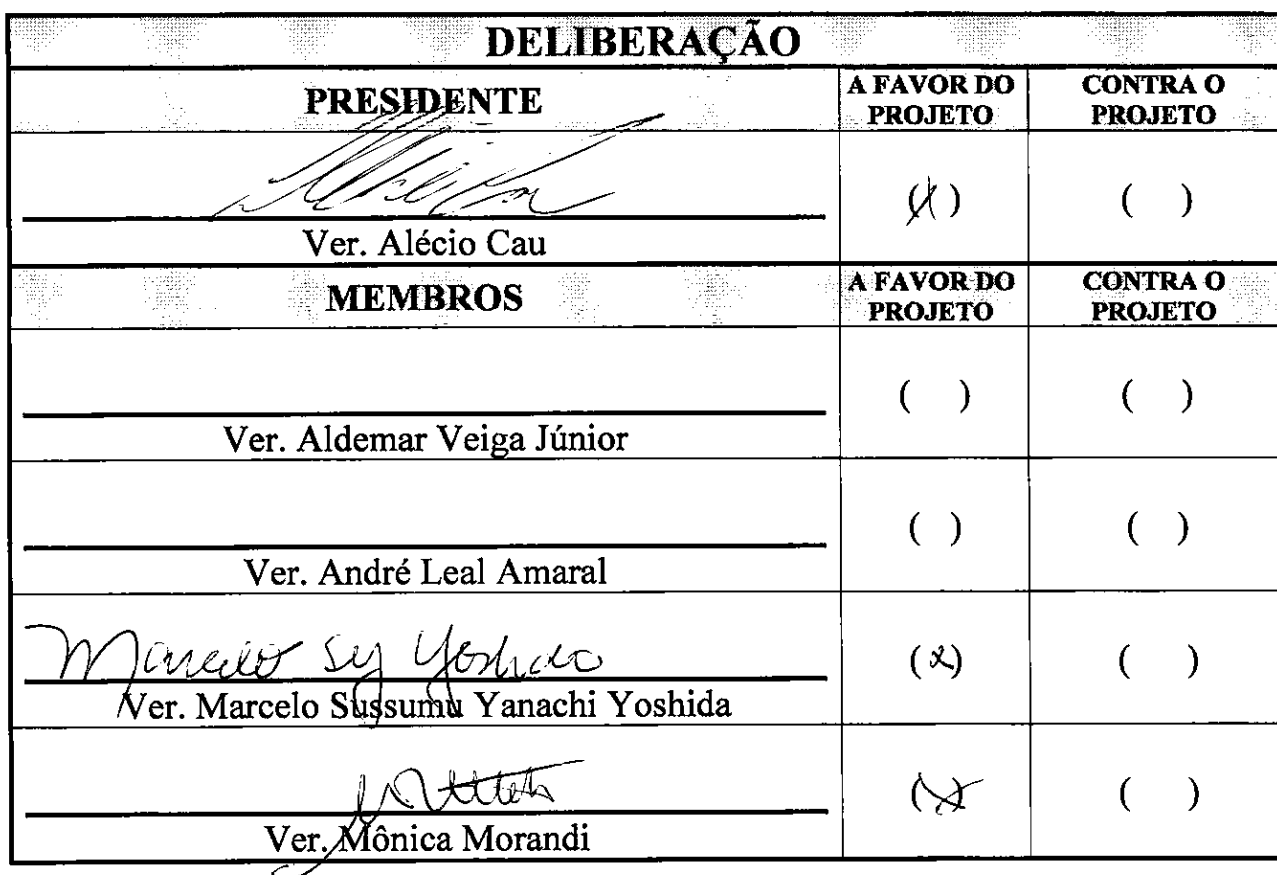 DELIBERAÇÃO
PRESIDENTE
A FAVOR DO PROJETO
CONTRA O PROJETO
(X)
( )
Ver. Alécio Cau
MEMBROS
A FAVOR DO PROJETO
CONTRA O PROJETO
( )
( )
Ver. Aldemar Veiga Júnior
( )
( )
Ver. André Leal Amaral
Marcelo sy Yoshida
(x)
( )
Ver. Marcelo Sussumu Yanachi Yoshida
(X)
( )
Ver. Mônica Morandi